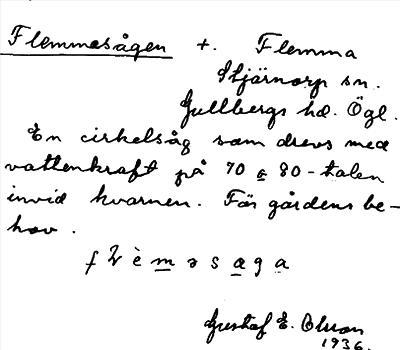 Flemmasågen +. Flemma
Stjärnorp sn.
Gullbergs hd. Ögl.
En cirkelsåg som drevs med
vattenkraft på 70 a 80-talen
invid kvarnen. För gårdens be-
hov.
Gustaf E. Olsson
1936.